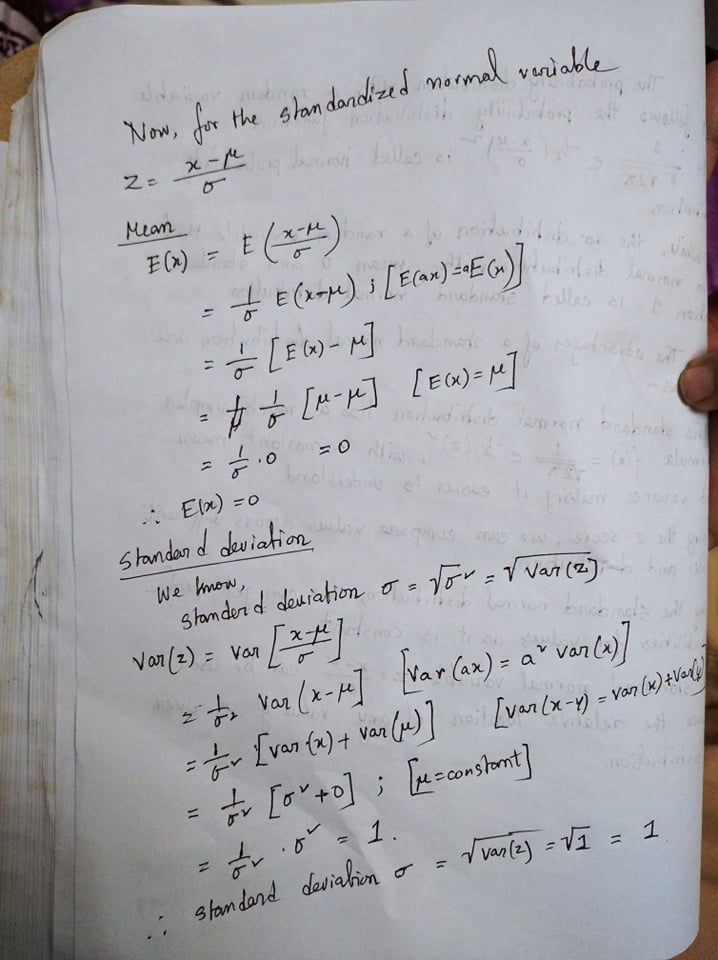 Now, for the standardized normal variable
z = (x-μ)/σ
Mean
E(x) = E((x-μ)/σ)
= 1/σ E(x-μ) ; [E(ax)=aE(x)]
= 1/σ [E(x) - μ]
= 1/σ [μ-μ] [E(x)=μ]
= 1/σ · 0 = 0
∴ E(x) = 0
standard deviation
We know,
standerd deviation σ = √σ² = √Var(z)
Var(z) = Var [(x-μ)/σ]
= 1/σ² Var(x-μ] [Var(ax) = a² var(x)]
= 1/σ² [var(x) + var(μ)] [var(x-y) = var(x)+var(y)
= 1/σ² [σ²+0] ; [μ=constant]
= 1/σ² · σ² = 1.
∴ standard deviation σ = √var(z) = √1 = 1